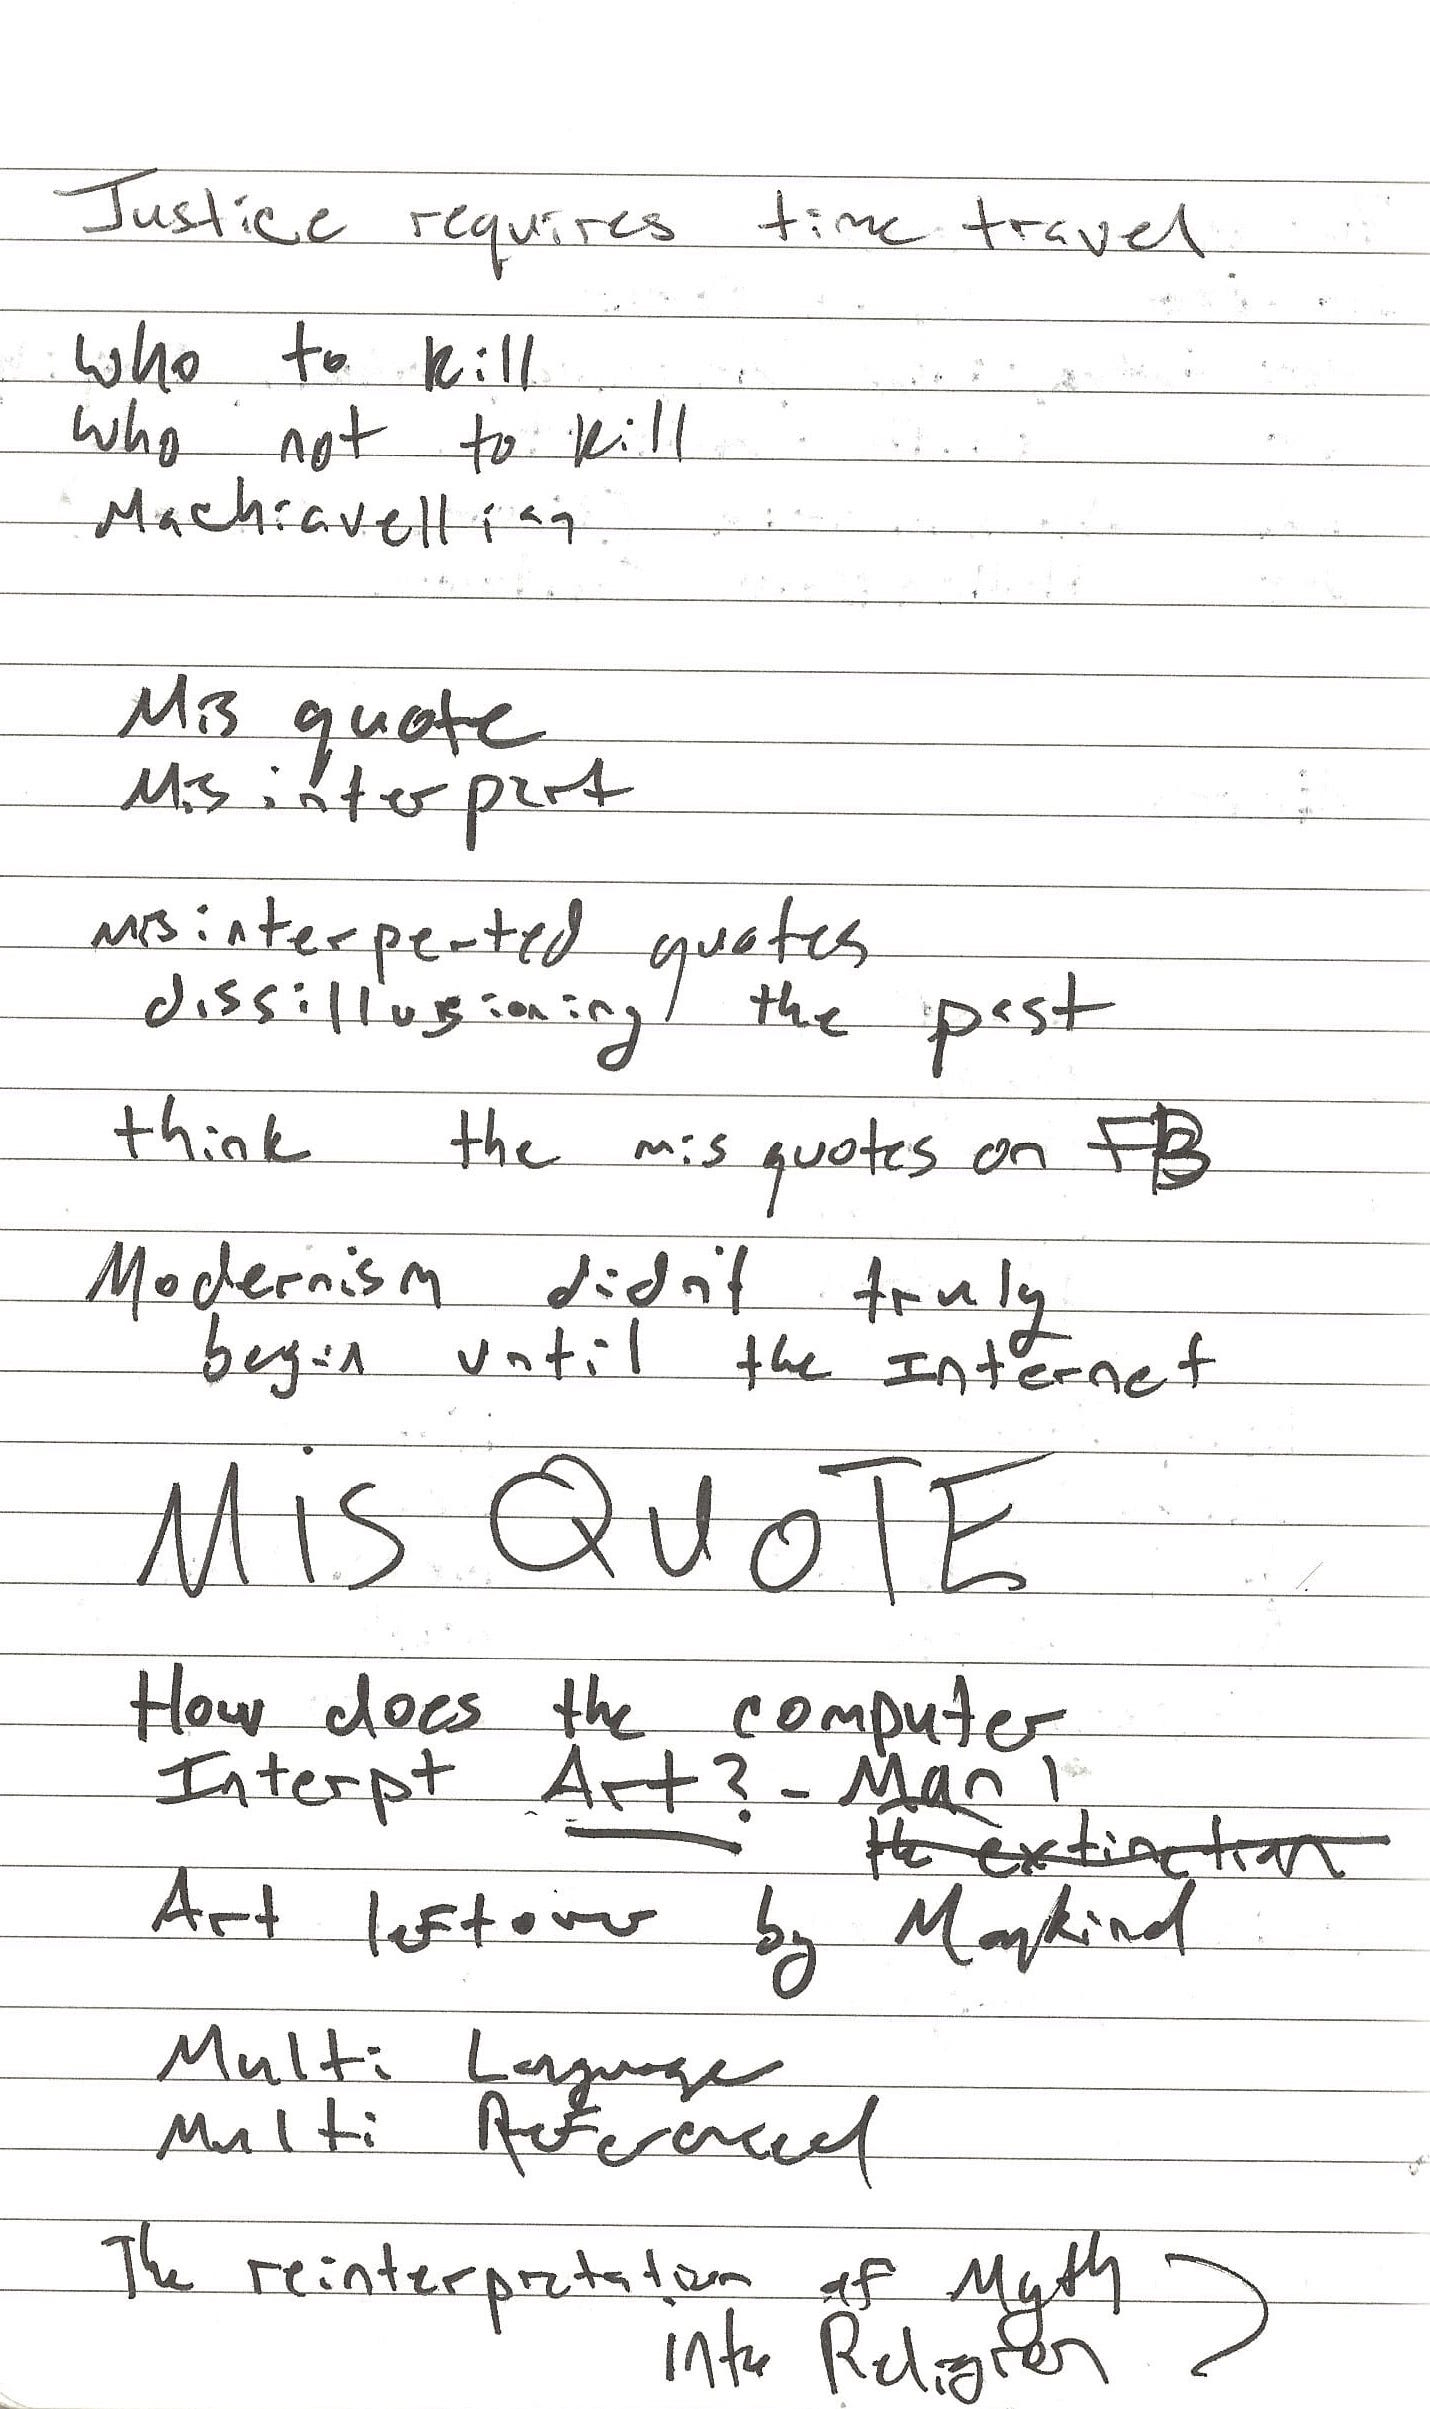 Justice requires time travel
Who to kill
Who not to kill
Machiavellian
Mis quote
Mis interpart
misinterperted quotes
dissillusioning the past
think the mis quotes on FB
Modernism didn't truly
begin until the Internet
MiS QUOTE
How does the computer
Interpt Art? - Man
the extinction
Art leftover by Mankind
Multi Language
Multi Referenced
The reinterpretation of Myth
into Religion